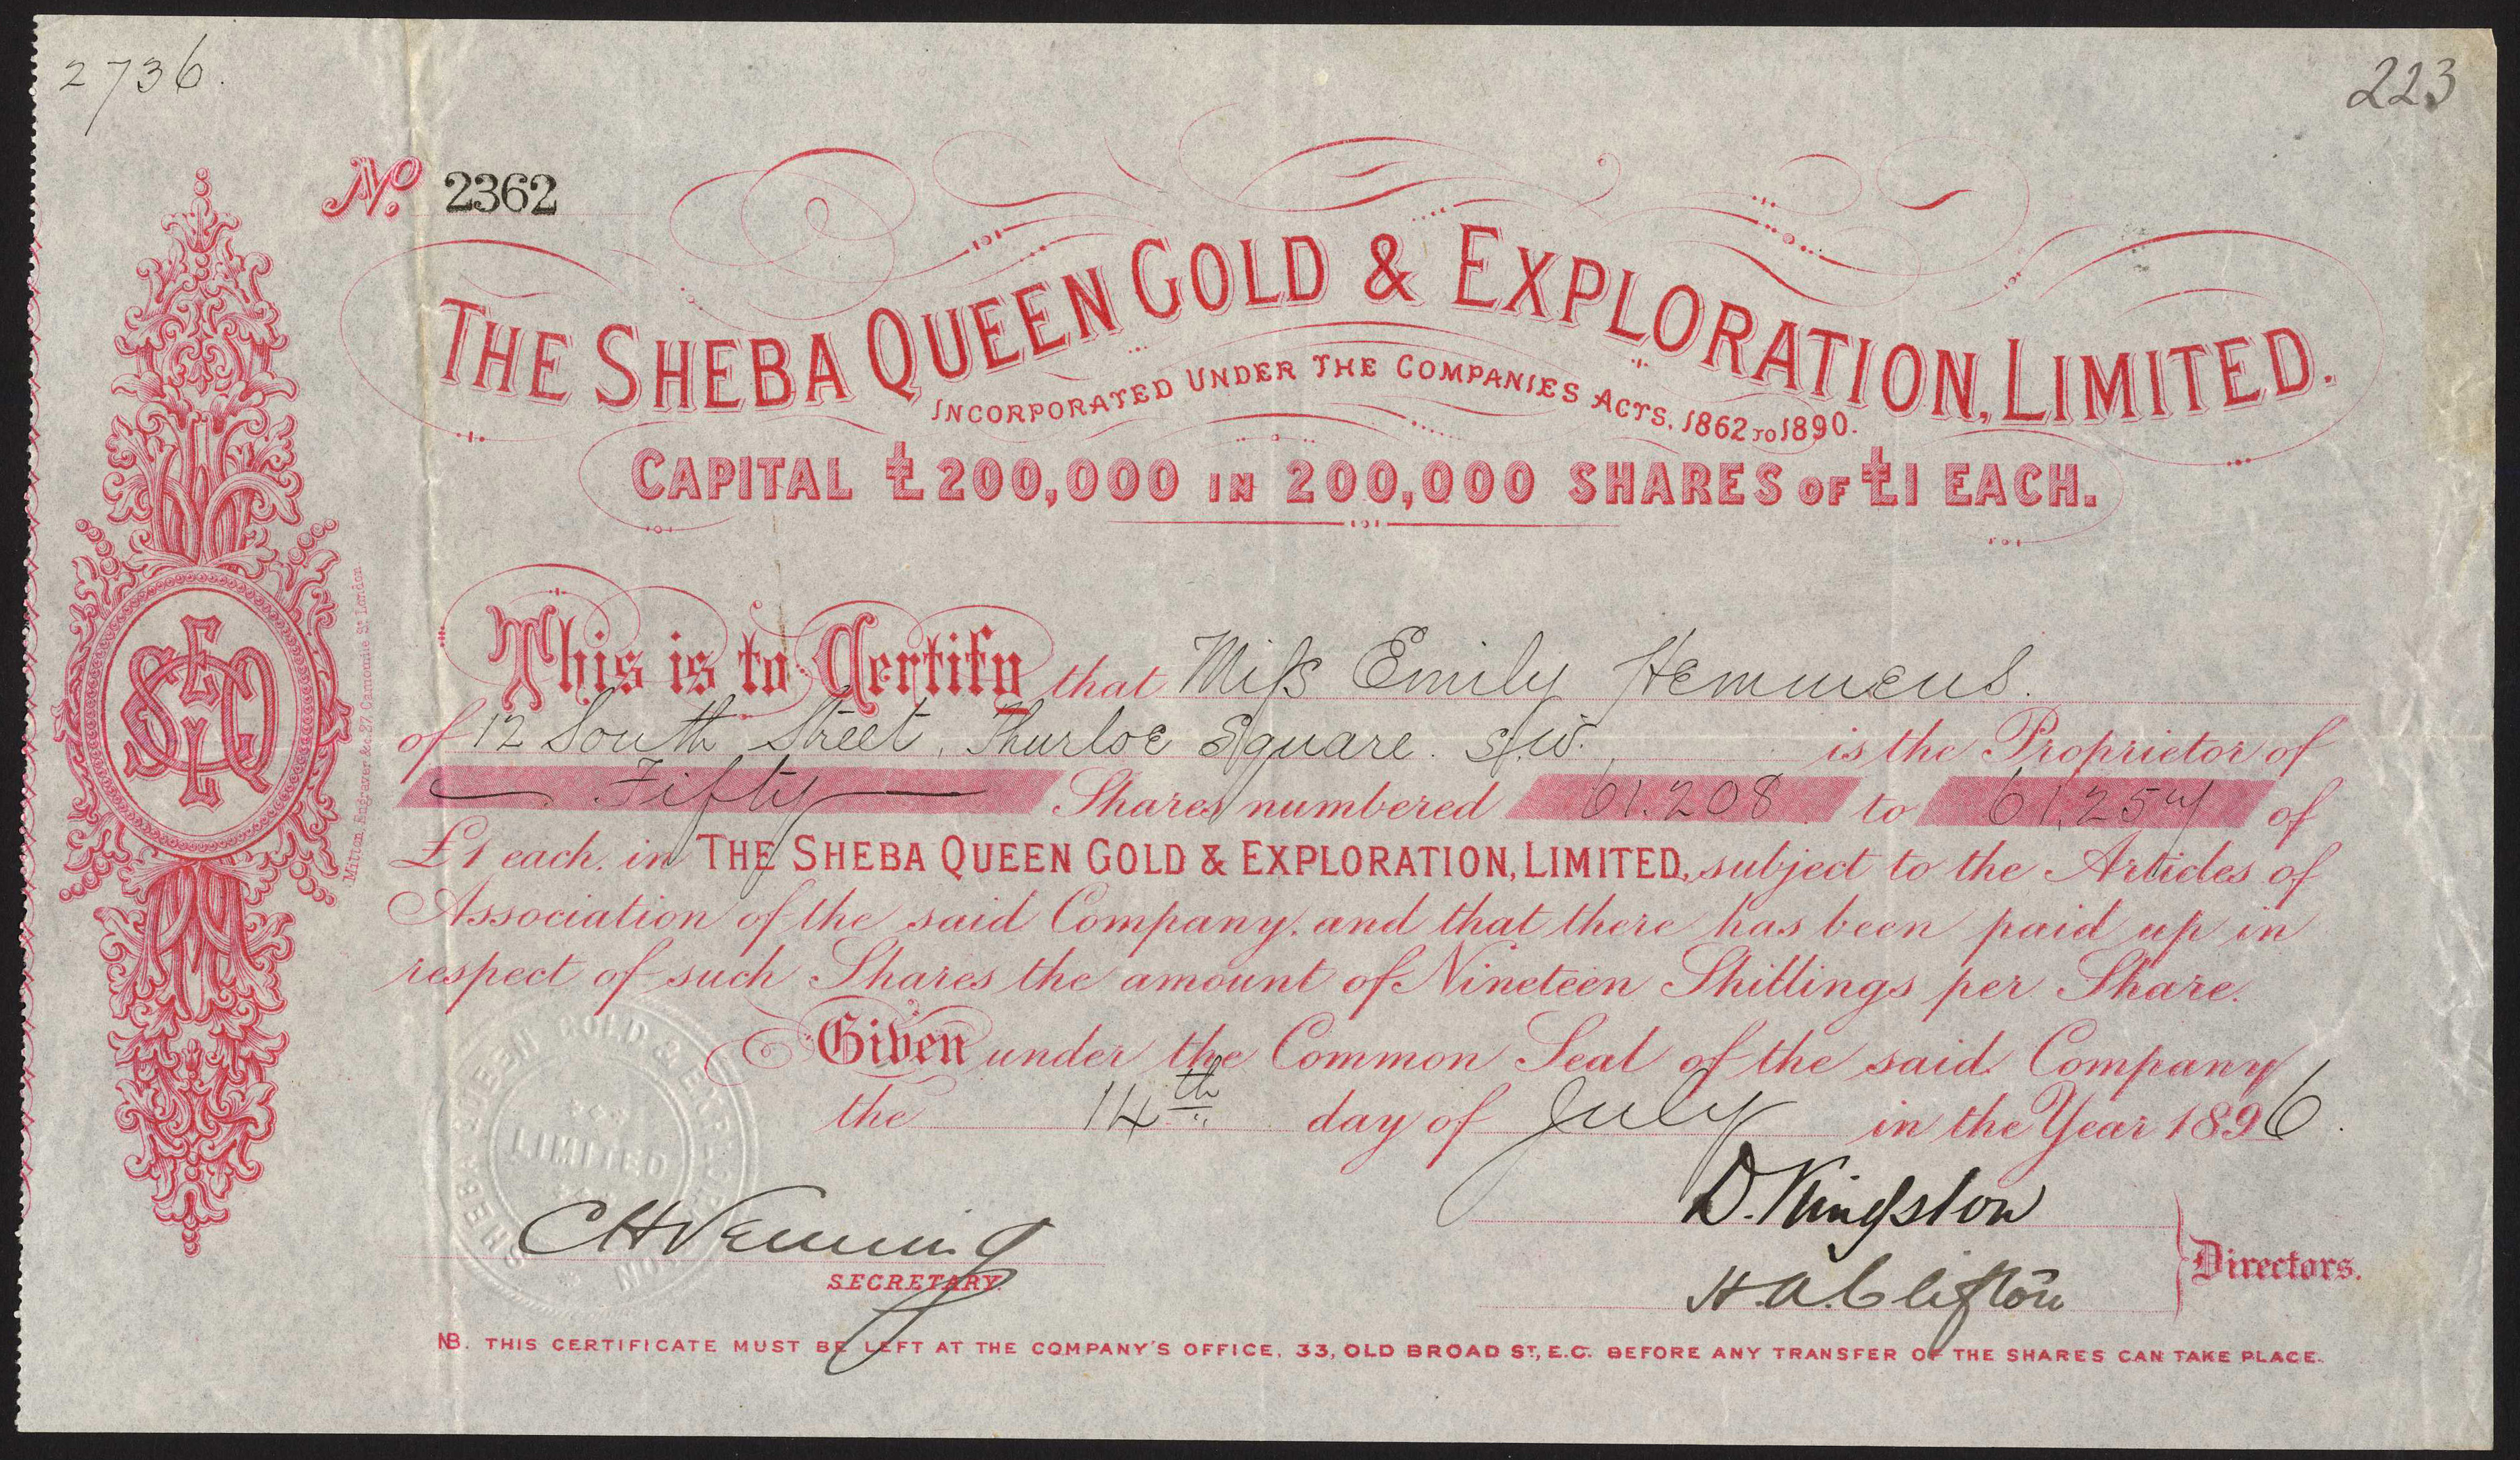 2736.
223
No. 2362
THE SHEBA QUEEN GOLD & EXPLORATION, LIMITED.
INCORPORATED UNDER THE COMPANIES ACTS, 1862 TO 1890.
CAPITAL £200,000 IN 200,000 SHARES OF £1 EACH.
This is to Certify that Miss Emily Hemmens.
of 12 South Street, Thurloe Square. S.W. is the Proprietor of
Fifty Shares numbered 61.208 to 61.257 of
£1 each, in THE SHEBA QUEEN GOLD & EXPLORATION, LIMITED, subject to the Articles of
Association of the said Company, and that there has been paid up in
respect of such Shares the amount of Nineteen Shillings per Share.
Given under the Common Seal of the said Company
the 14th day of July in the Year 1896.
SHEBA QUEEN GOLD & EXPLORATION
LIMITED
C H Venning
SECRETARY.
D. Kingston
H. A. Clifton
Directors.
NB. THIS CERTIFICATE MUST BE LEFT AT THE COMPANY'S OFFICE, 33, OLD BROAD ST, E.C. BEFORE ANY TRANSFER OF THE SHARES CAN TAKE PLACE.
Mitton, Engraver &c. 27 St London